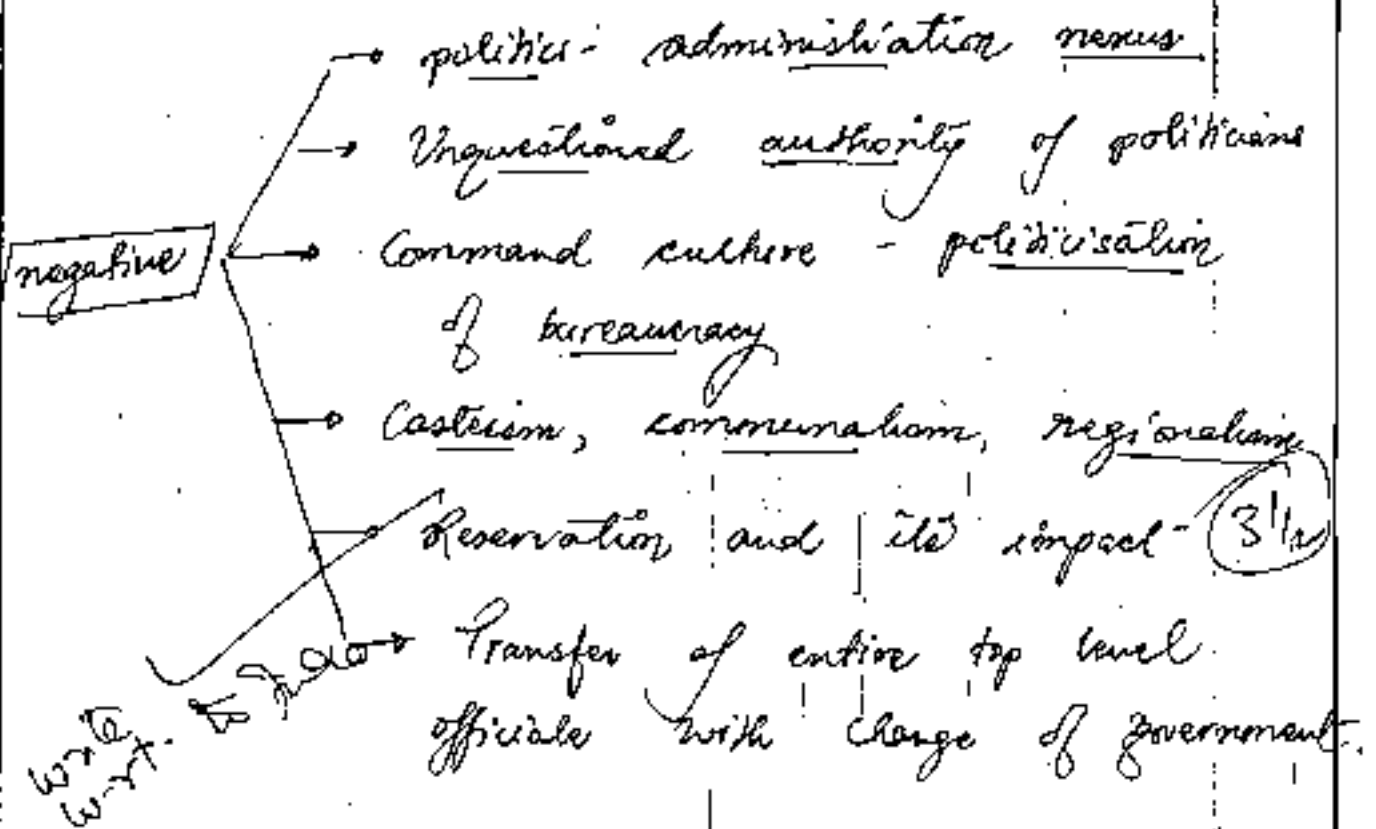 → politici- administration nexus
→ Unquestioned authority of politicians
negative → Command culture - politicisation
of bureaucracy
→ Casteism, communalism, regionalism
→ Reservation and its impact 3 1/2
→ Transfer of entire top level
officials with change of government.